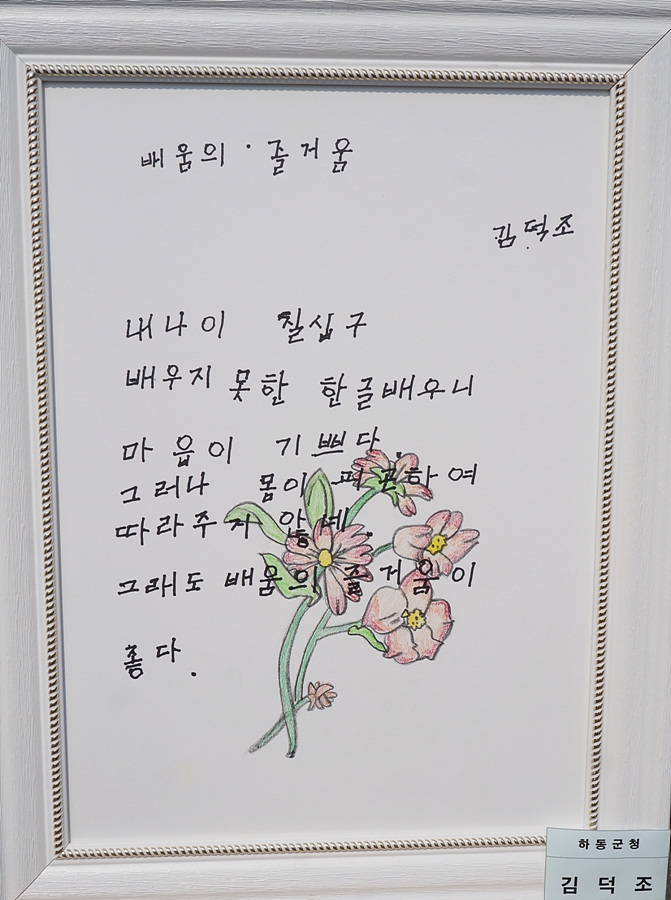 배움의 · 즐거움
김덕조
내나이 칠십구
배우지 못한 한글배우니
마음이 기쁘다.
그러나 몸이 피곤하여
따라주지 않네.
그래도 배움의 즐거움이
좋다.
하동군청
김덕조